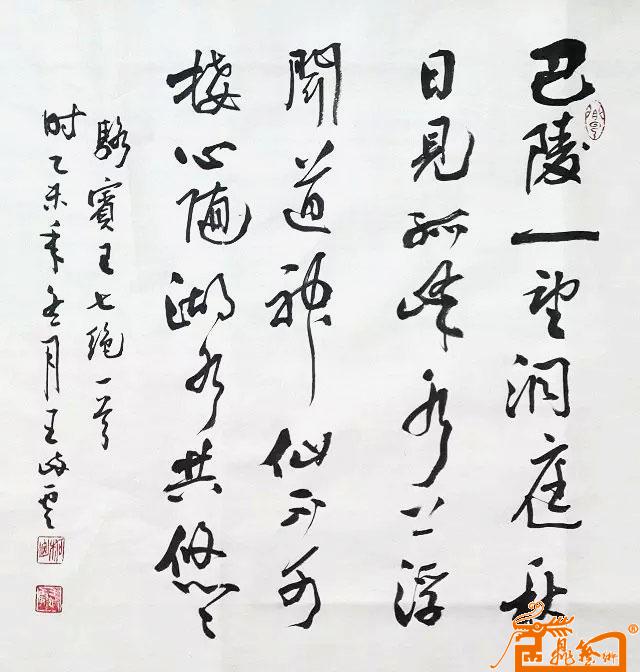 巴陵一望洞庭秋
日見孤峰水上浮
聞道神仙不可
接心隨湖水共悠々
駱賓王七绝一首
时乙未年冬月王